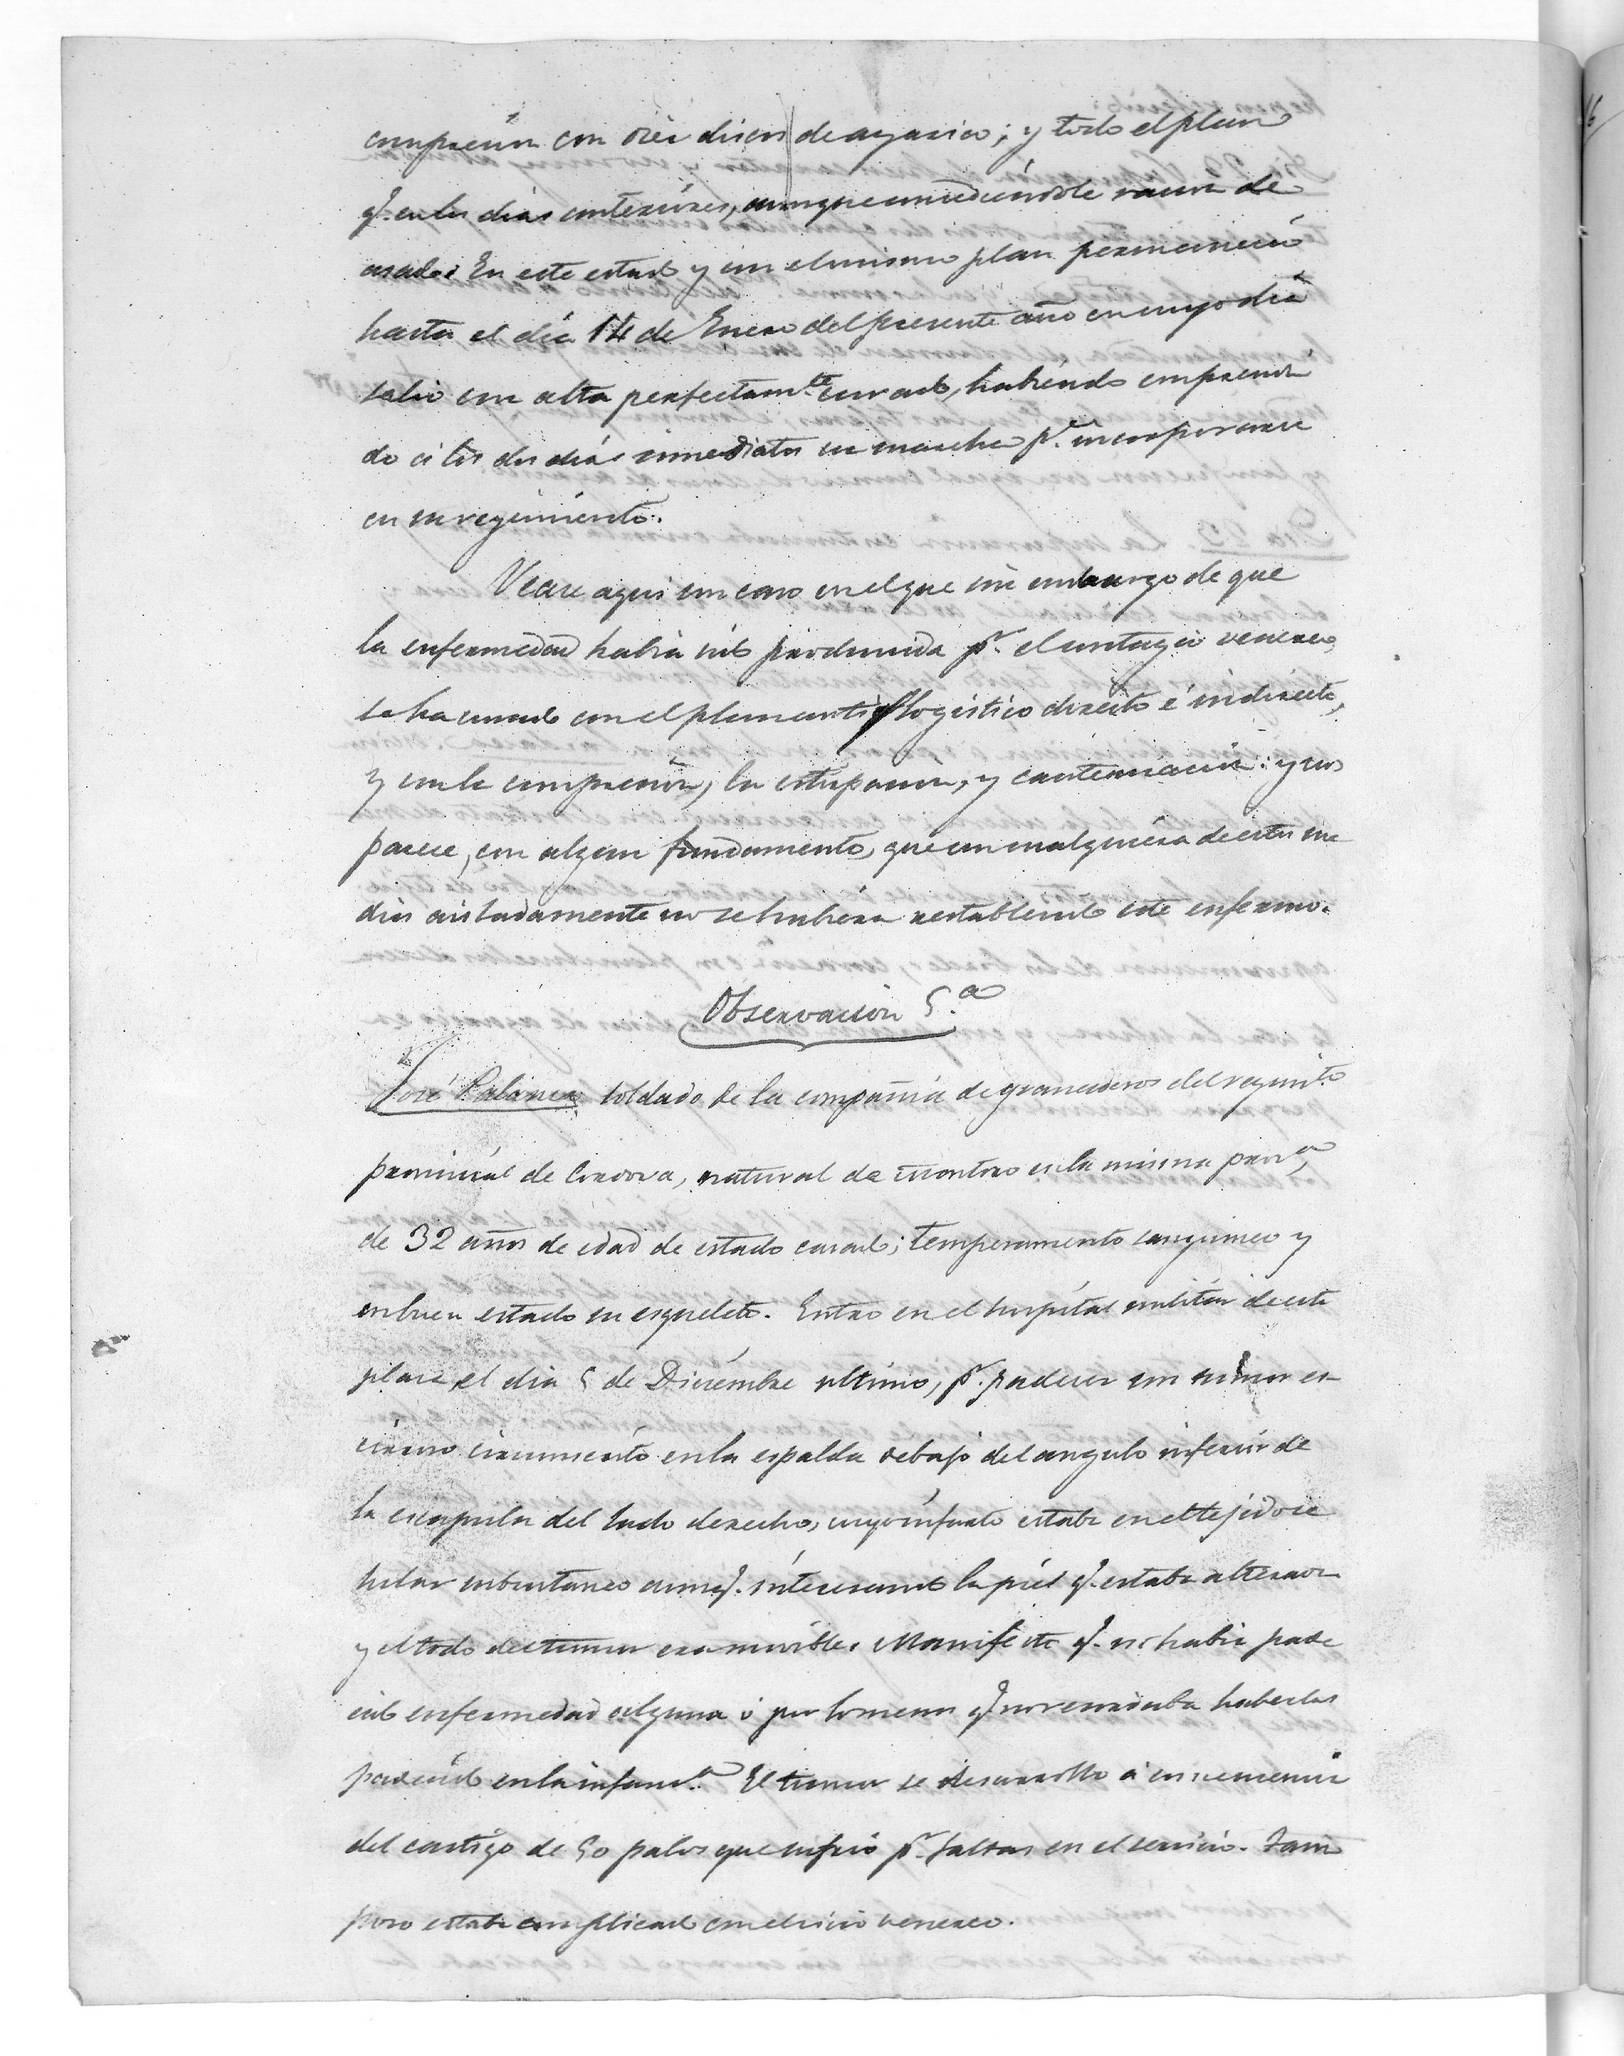 compresion con diez discos de agarico; y todo el plan
q.e en los dias anteriores, aunque concediendole racion de
asado. En este estado y con el mismo plan permanecio
hasta el dia 14 de Enero del presente año en cuyo dia
salio con alta perfectam.te curado, habiendo emprendi
do a los dos dias inmediatos su marcha p.a incorporarse
en su regimiento.
Vease aqui un caso en el que sin embargo de que
la enfermedad habia sido producida p.r el contagio venereo,
se ha curado con el plan antiflogistico directo é indirecto,
y con la compresion, la estirpacion, y cauterizacion: y nos
parece, con algun fundamento, que con cualquiera de estos me
dios aisladamente no se hubiera restablecido este enfermo.
Observacion 5.a
José Rabanes soldado de la compañia de granaderos del regim.to
provincial de Cordova, natural de Montoro en la misma prov.a,
de 32 años de edad de estado casado; temperamento sanguineo y
en buen estado su esqueleto. Entro en el hospital militar de esta
plaza el dia 5 de Diciembre ultimo, p.r padecer un tumor es-
cirroso circunscrito en la espalda debajo del angulo inferior de
la escapula del lado derecho, cuyo infarto estaba en el tejido ce
lular subcutaneo aunq.e interesando la piel q.e estaba alterada
y el todo del tumor era movible. Manifesto q.e no habia pade
cido enfermedad alguna ó por lo menos q.e no recordaba haberlas
padecido en la infanc.a El tumor se desarrollo á consecuencia
del castigo de 50 palos que sufrió p.r faltas en el servicio. Tam
poco estaba complicado con el vicio venereo.